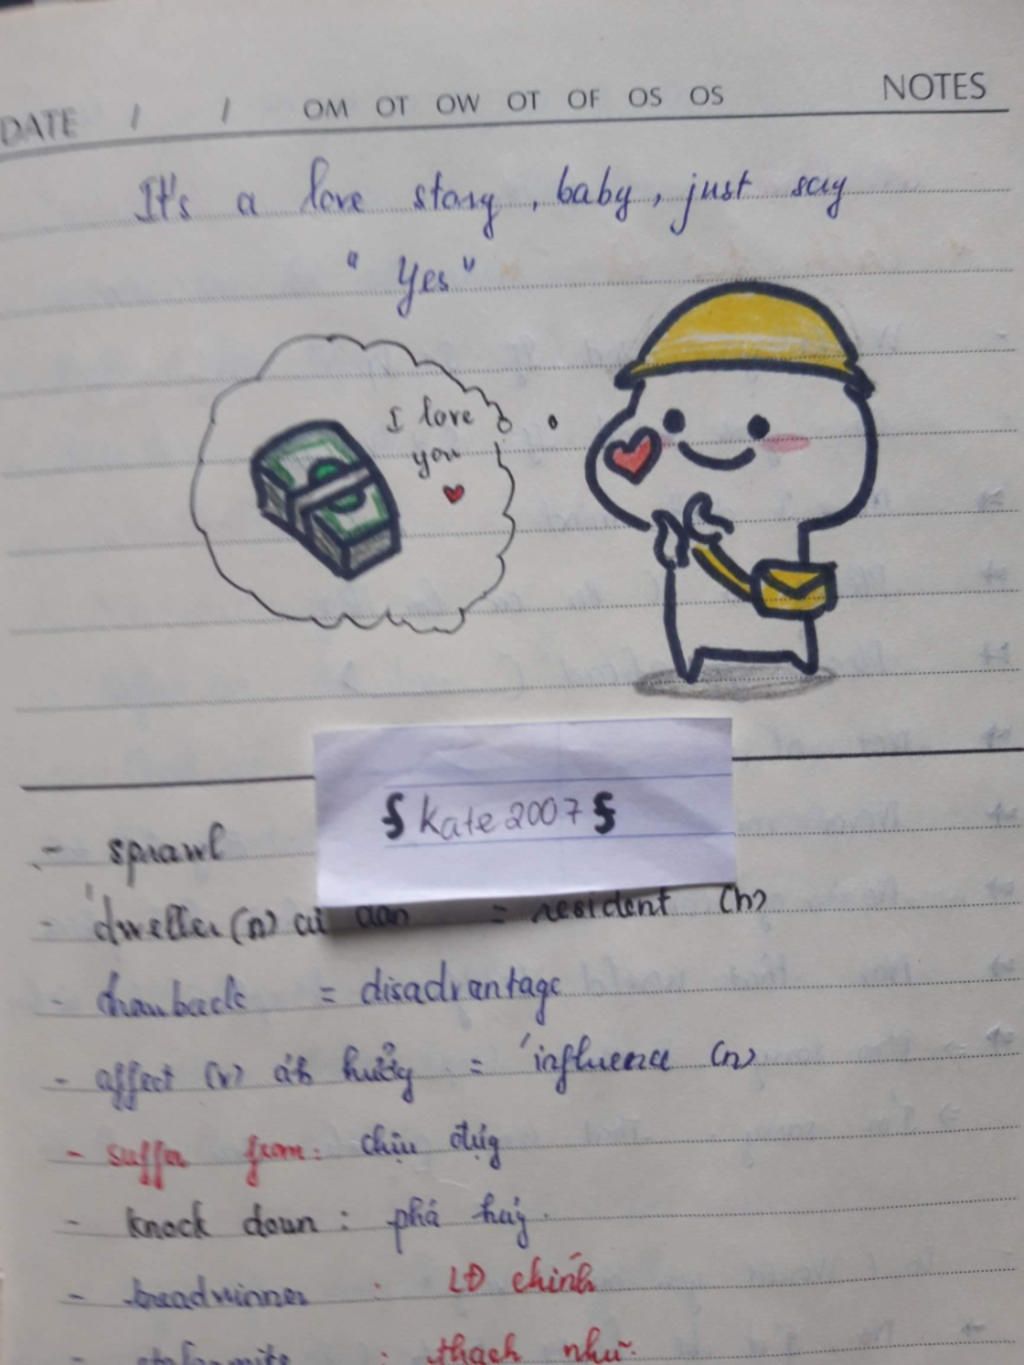 DATE / / OM OT OW OT OF OS OS NOTES
It's a love story, baby, just say
"Yes"
I love
you
kate2007
- sprawl
- 'dweller (n) cư dân = resident (n)
- drawback = disadvantage
- affect (v) ảh hưởg = 'influence (n)
- suffer from: chịu đựg
- knock down: phá hủy.
- breadwinner : LĐ chính
- stalagmite : thạch nhũ.